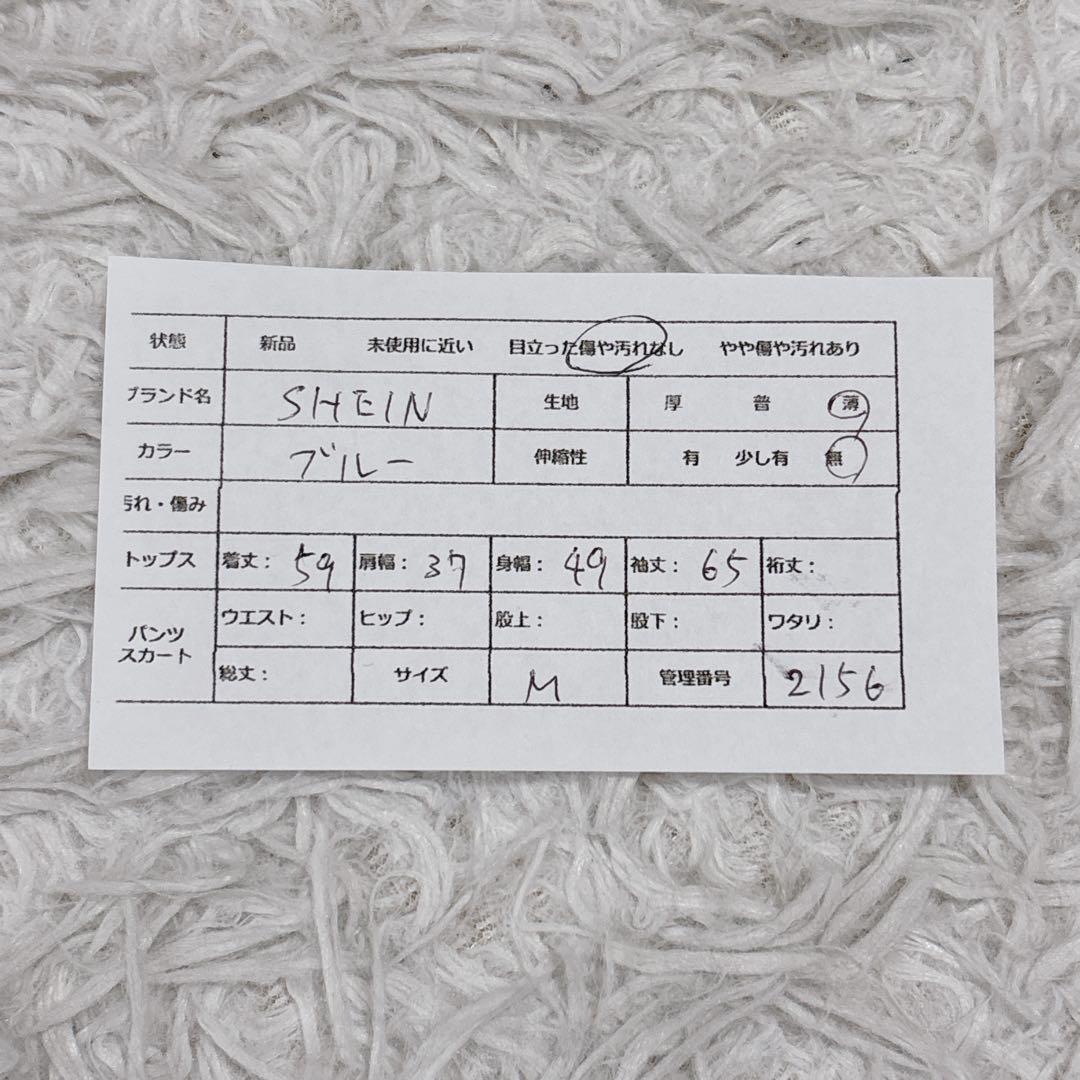 状態 新品 未使用に近い 目立った傷や汚れなし やや傷や汚れあり
ブランド名 SHEIN 生地 厚 普 薄
カラー ブルー 伸縮性 有 少し有 無
汚れ・傷み
トップス 着丈： 59 肩幅： 37 身幅： 49 袖丈： 65 裄丈：
パンツ ウエスト： ヒップ： 股上： 股下： ワタリ：
スカート 総丈： サイズ M 管理番号 2156